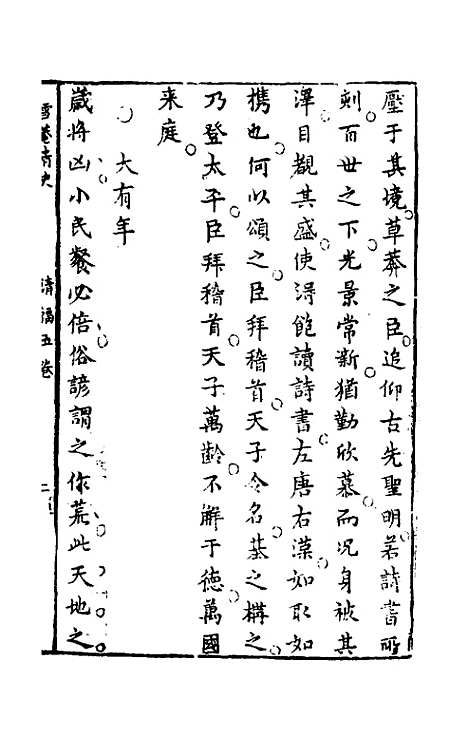 壓于其境草莽之臣追仰古先聖明若詩書所
刻而世之下光景常新猶勤欣慕而况身被其
澤目覩其盛使得飽讀詩書左唐右漢如取如
携也何以頌之臣拜稽首天子令名基之構之
乃登太平臣拜稽首天子萬齡不解于德萬國
来庭
大有年
歲將凶小民餐必倍俗諺謂之作荒此天地之
雪菴清史
清福五卷